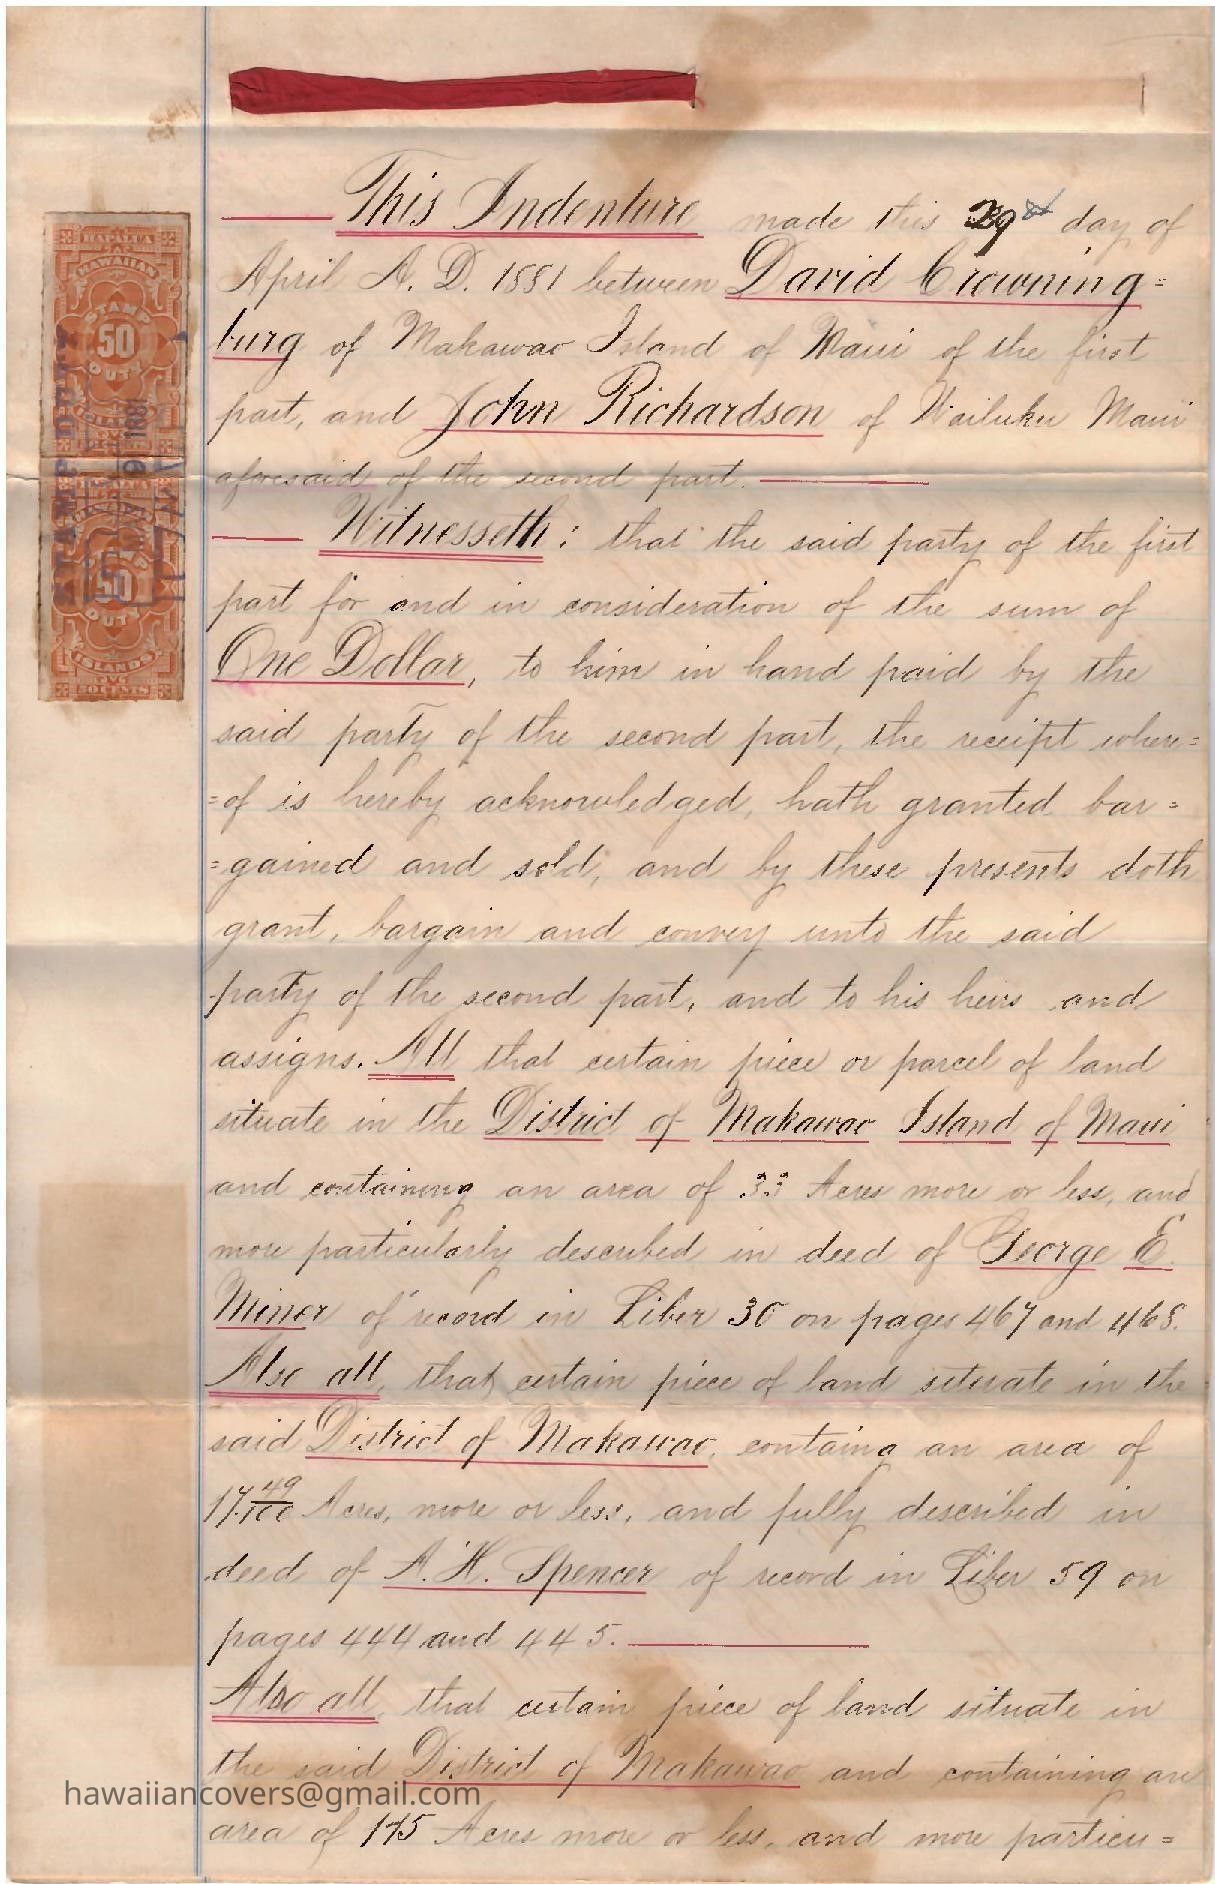 HAPALUA
HAWAIIAN
STAMP
50
DUTY
STAMP DUTY
1881
50
DUTY
ISLANDS
50 CENTS
This Indenture made this 29th day of
April A. D. 1881 between David Crowning=
burg of Makawao Island of Maui of the first
part, and John Richardson of Wailuku Maui
aforesaid of the second part.
Witnesseth: that the said party of the first
part for and in consideration of the sum of
One Dollar, to him in hand paid by the
said party of the second part, the receipt where=
=of is hereby acknowledged, hath granted bar=
=gained and sold, and by these presents doth
grant, bargain and convey unto the said
party of the second part, and to his heirs and
assigns. All that certain piece or parcel of land
situate in the District of Makawao Island of Maui
and containing an area of 33 Acres more or less, and
more particularly described in deed of George E.
Miner of record in Liber 30 on pages 467 and 468.
Also all, that certain piece of land situate in the
said District of Makawao, containg an area of
17 49/100 Acres, more or less, and fully described in
deed of A. H. Spencer of record in Liber 59 on
pages 444 and 445.
Also all, that certain piece of land situate in
the said District of Makawao and containing an
hawaiiancovers@gmail.com
area of 145 Acres more or less, and more particu=